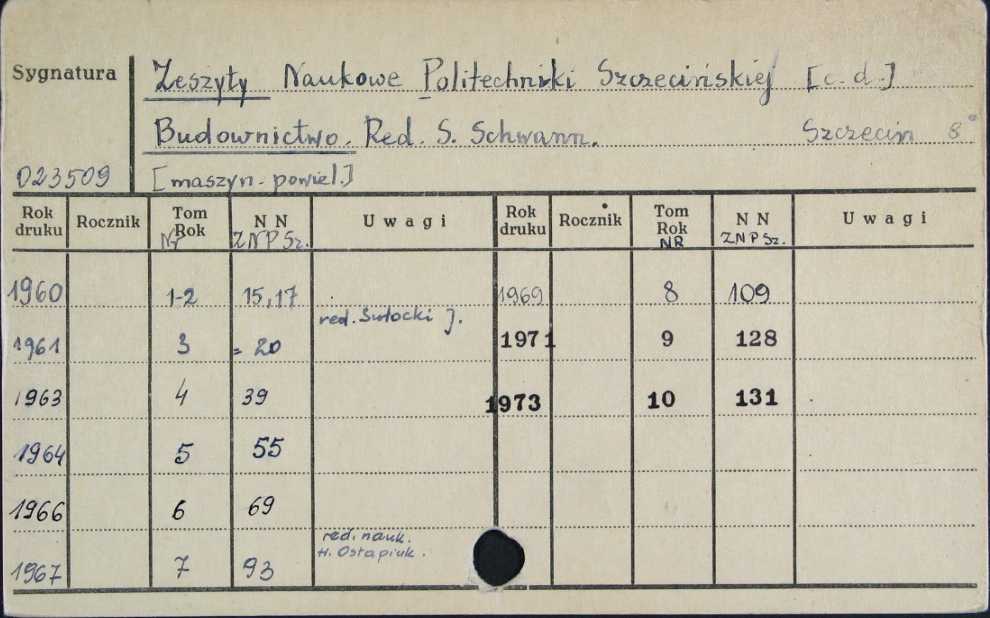 Sygnatura Zeszyty Naukowe Politechniki Szczecińskiej [c.d.]
Budownictwo. Red. S. Schwann. Szczecin 8°
023509 [maszyn. powiel.]
Rok druku Rocznik Tom Rok Nr N N Z N P Sz. Uwagi Rok druku Rocznik Tom Rok NR N N Z N P Sz. Uwagi
1960 1-2 15,17 1969 8 109
red. J.
1961 3 20 1971 9 128
1963 4 39 1973 10 131
1964 5 55
1966 6 69
red. nauk.
H. Ostapiuk.
1967 7 93